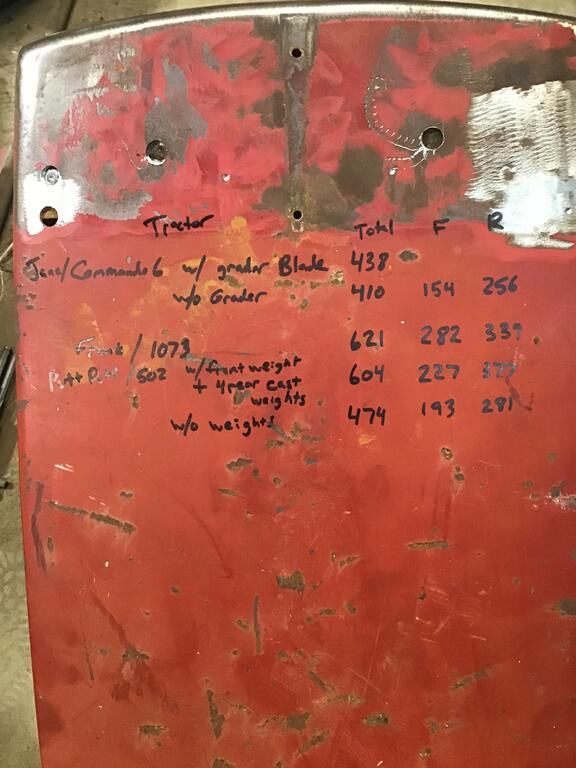 Tractor Total F R
Jane/Commando 6 w/ grader Blade 438
w/o Grader 410 154 256
Frank / 1073 621 282 339
Putt Putt / 502 w/front weight 604 227 377
+ 4 rear cast
weights
w/o weights 474 193 281